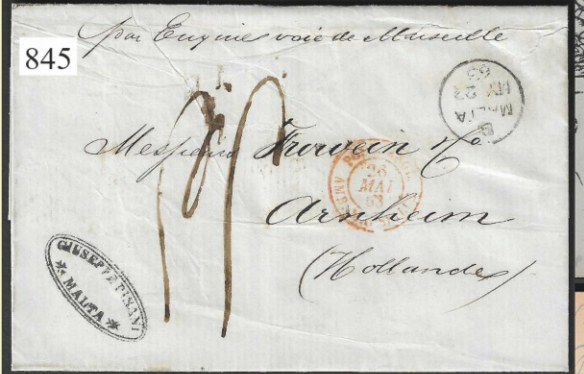 par Euxine voie de Marseille
845
MALTA
B
MY 23
63
Messieurs Frowein & Co.
26
MAI
63
Arnheim
(Hollande)
GIUSEPPE PISANI
* MALTA *